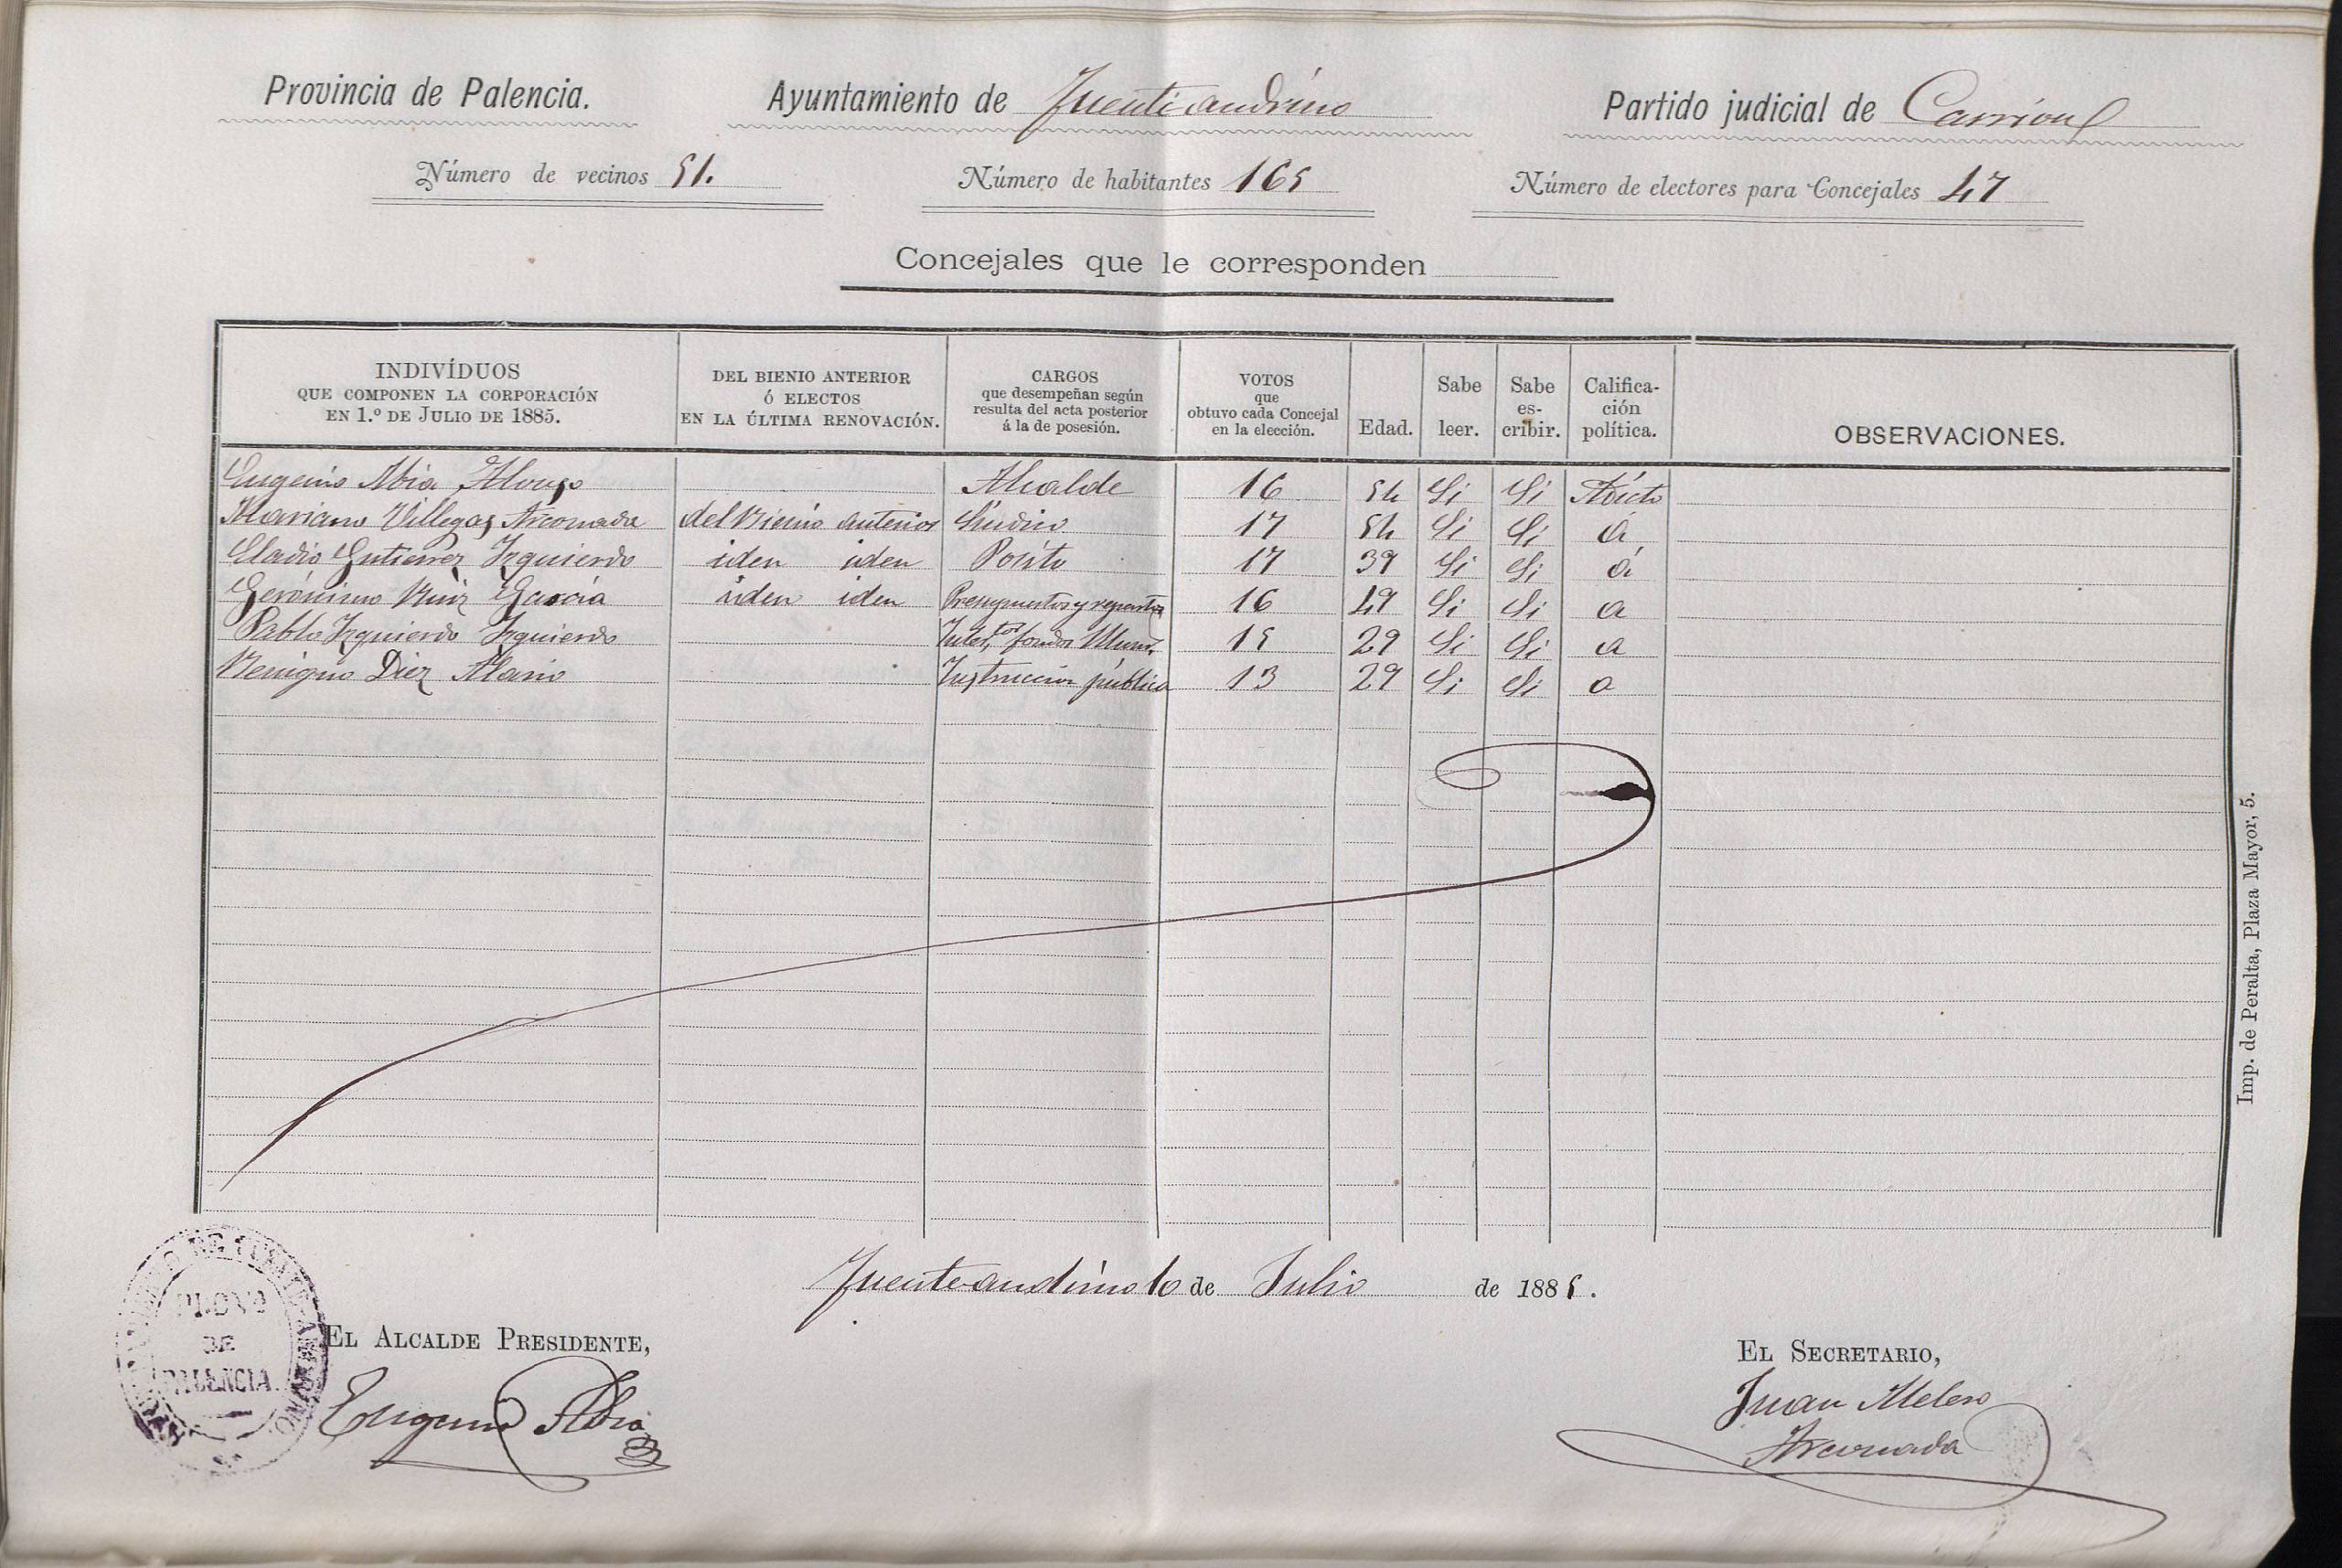 Provincia de Palencia. Ayuntamiento de Fuenteandrino Partido judicial de Carrion
Número de vecinos 51. Número de habitantes 165 Número de electores para Concejales 47
Concejales que le corresponden
INDIVÍDUOS QUE COMPONEN LA CORPORACIÓN EN 1.º DE JULIO DE 1885. DEL BIENIO ANTERIOR Ó ELECTOS EN LA ÚLTIMA RENOVACIÓN. CARGOS que desempeñan según resulta del acta posterior á la de posesión. VOTOS que obtuvo cada Concejal en la elección. Edad. Sabe leer. Sabe es-cribir. Califica-ción política. OBSERVACIONES.
Eugenio Abia Alonso Alcalde 16 54 Si Si Adicto
Mariano Villegas Arconada del Bienio anterior Síndico 17 54 Si Si á
Eladio Gutierrez Izquierdo iden iden Posito 17 39 Si Si á
Gerónimo Ruiz Garcia iden iden Presupuestos y repartos 16 49 Si Si a
Pablo Izquierdo Izquierdo fondos 15 29 Si Si a
Benigno Diez Alario Instruccion pública 13 29 Si Si a
Fuenteandrino 10 de Julio de 1885.
EL ALCALDE PRESIDENTE,
Eugenio Abia
EL SECRETARIO,
Juan Melero
Arconada
PROVª
DE
PALENCIA
Imp. de Peralta, Plaza Mayor, 5.